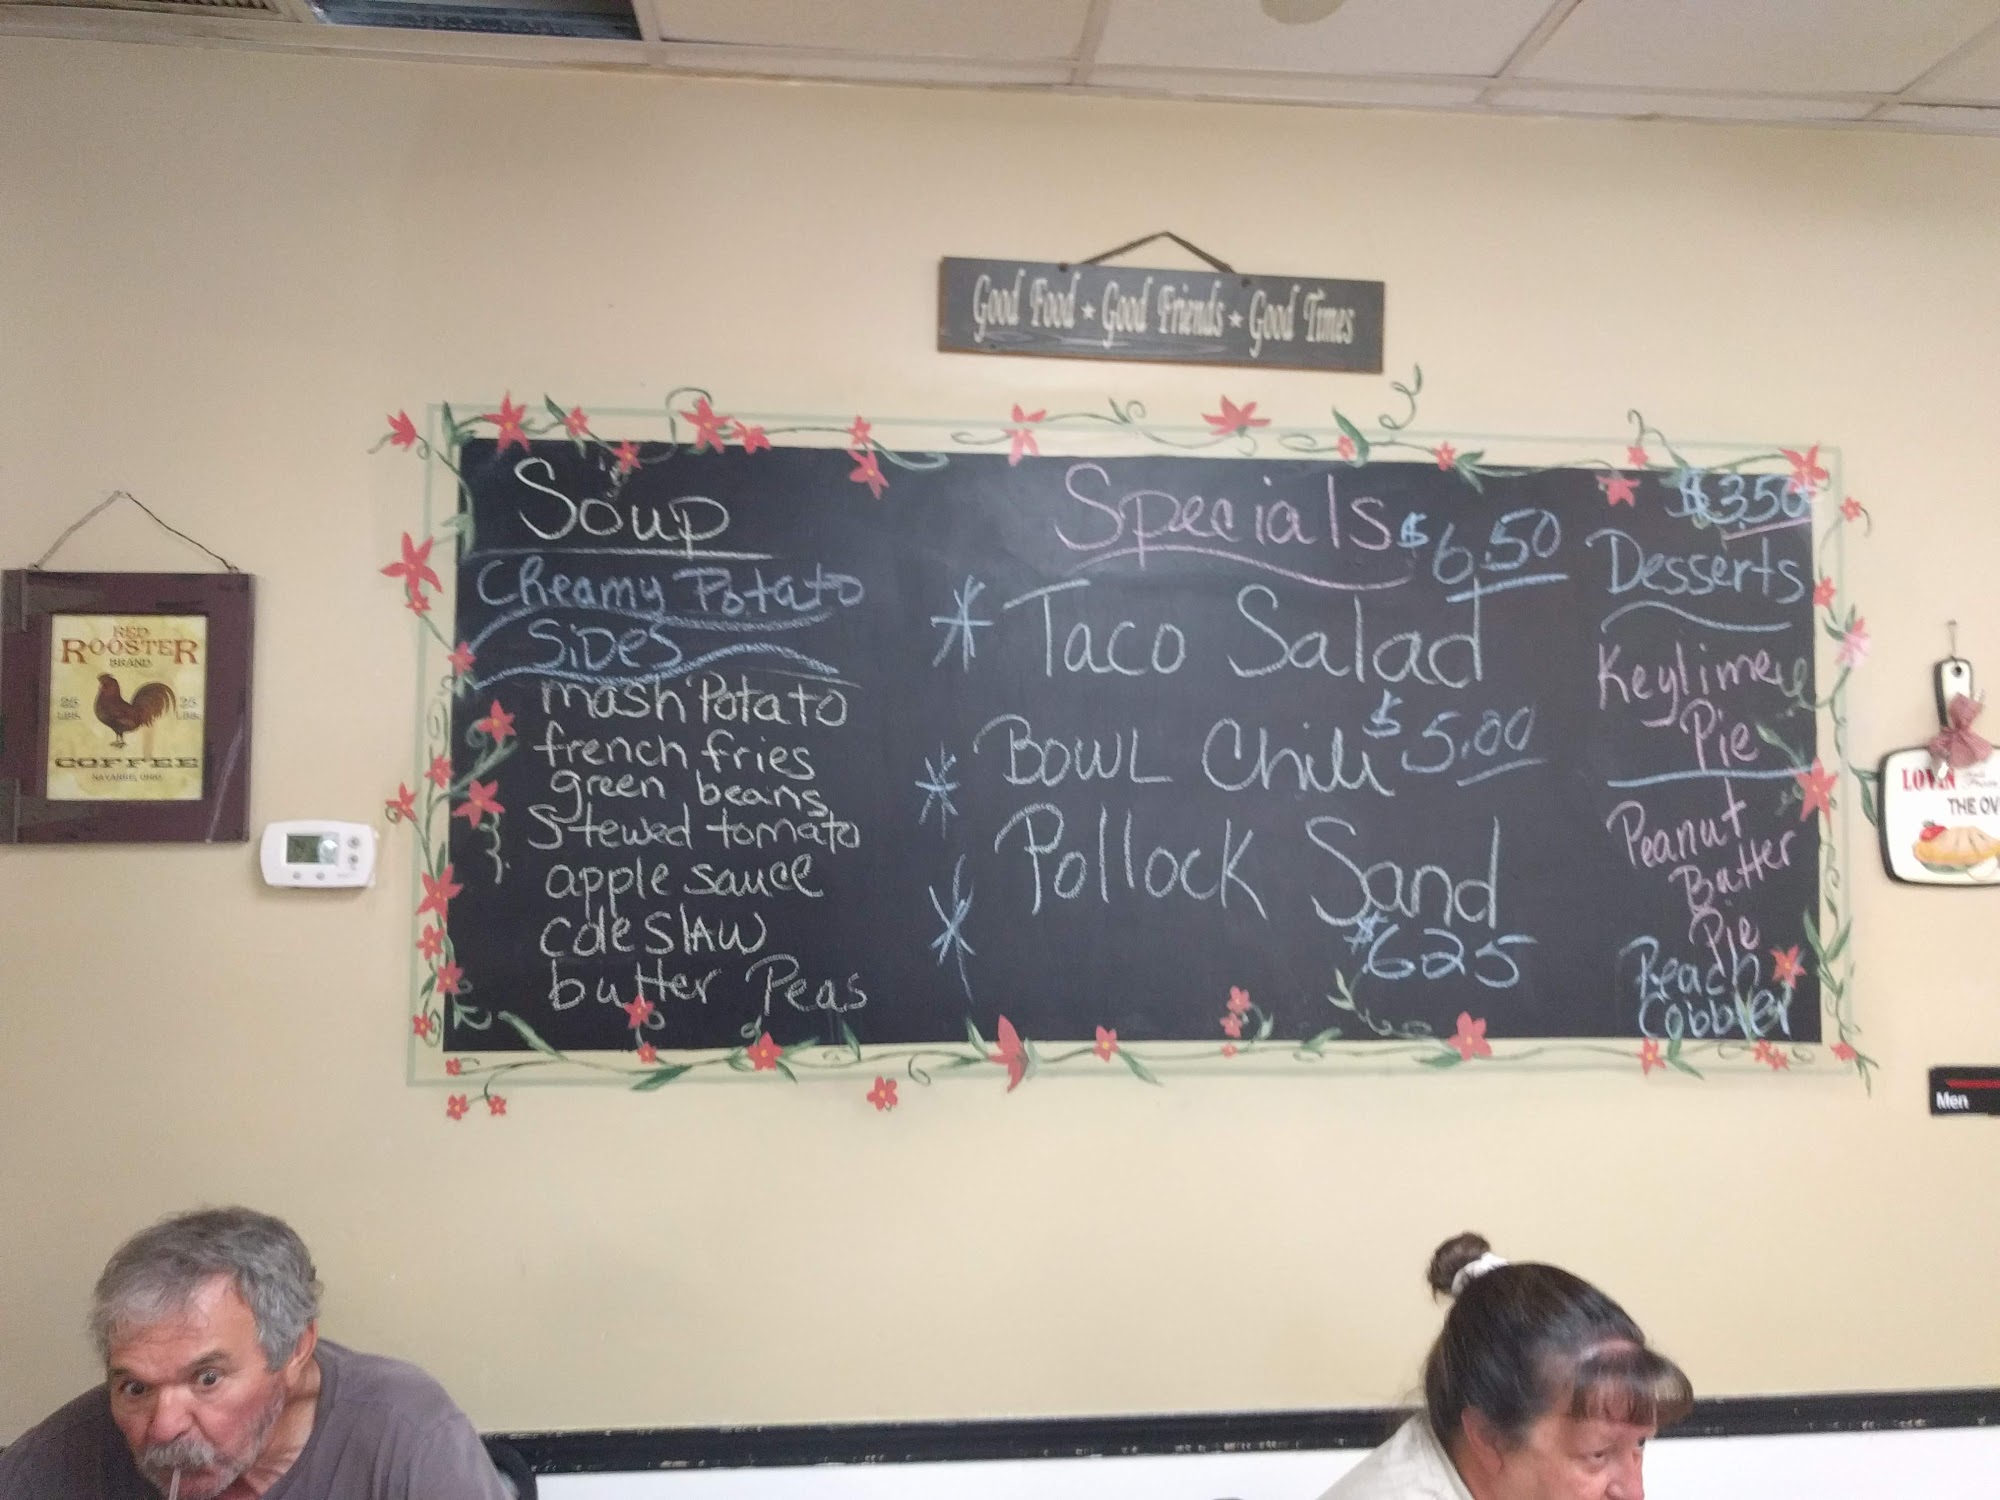 Good Food ★ Good Friends ★ Good Times
RED
ROOSTER
BRAND
25
LBS.
25
LBS.
COFFEE
NAVARRE, OHIO
Soup
Creamy Potato
Sides
mash Potato
french fries
green beans
Stewed tomato
apple sauce
cole slaw
butter Peas
Specials
$6.50
Taco Salad
Bowl Chili $5.00
Pollock Sand
$625
$3.50
Desserts
Keylime
Pie
Peanut
Butter
Pie
Peach
Cobbler
LOVIN
THE OV
Men